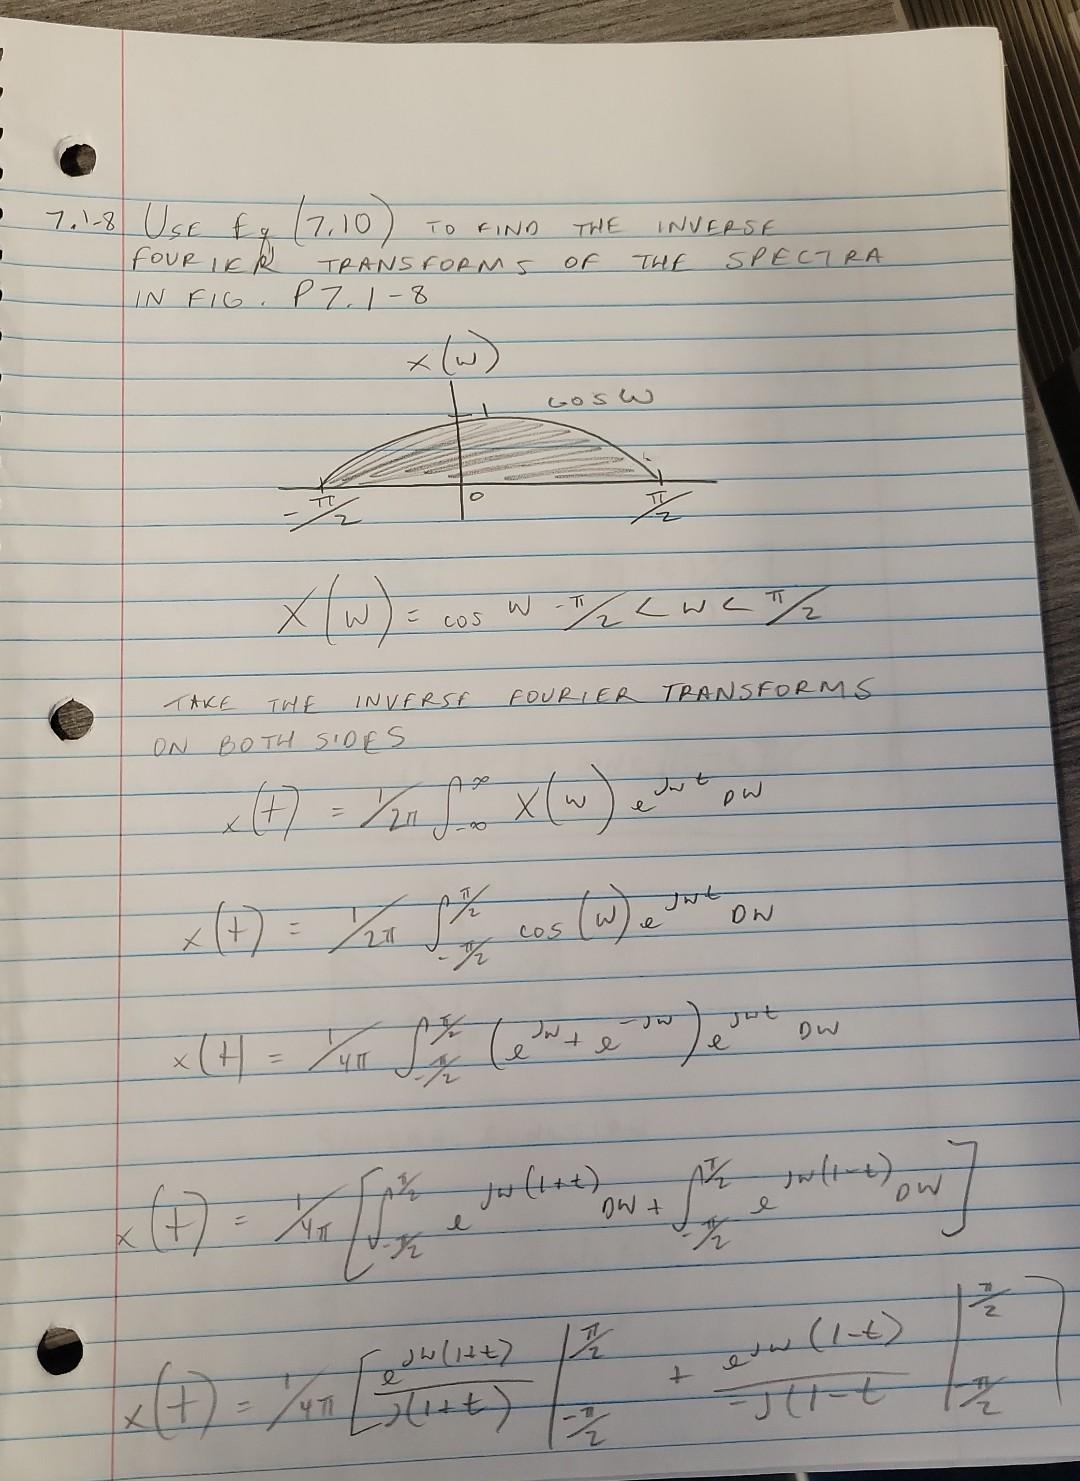 7.1-8 USE Eq (7.10) TO FIND THE INVERSE
FOURIER TRANSFORMS OF THE SPECTRA
IN FIG. P7.1-8
x(w)
1 cos w
-π/2 0 π/2
X(w) = cos w -π/2 < w < π/2
TAKE THE INVERSE FOURIER TRANSFORMS
ON BOTH SIDES
x(t) = 1/2π ∫_{-∞}^{∞} X(w) e^{jwt} DW
x(t) = 1/2π ∫_{-π/2}^{π/2} cos(w) e^{jwt} DW
x(t) = 1/4π ∫_{-π/2}^{π/2} (e^{jw} + e^{-jw}) e^{jwt} DW
x(t) = 1/4π [∫_{-π/2}^{π/2} e^{jw(1+t)} DW + ∫_{-π/2}^{π/2} e^{jw(1-t)} DW]
x(t) = 1/4π [e^{jw(1+t)}/j(1+t) |_{-π/2}^{π/2} + e^{jw(1-t)}/-j(1-t |_{-π/2}^{π/2}]